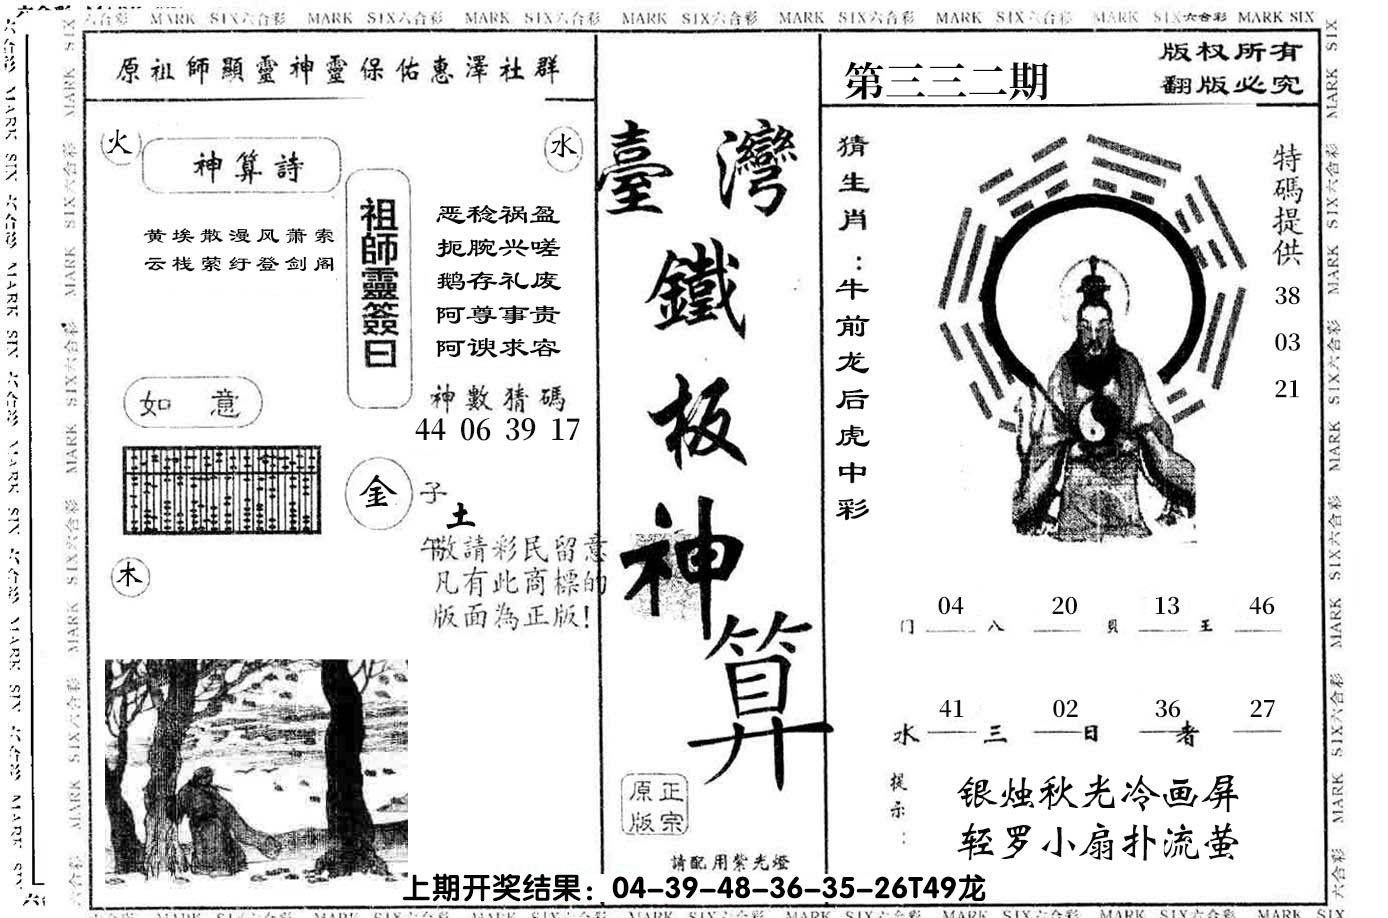 MARK SIX六合彩 MARK SIX六合彩 MARK SIX六合彩 MARK SIX六合彩 MARK SIX六合彩 MARK SIX六合彩 MARK SIX六合彩 MARK SIX
原祖師顯靈神靈保佑惠澤社群
火
神算詩
水
黄埃散漫风萧索
云栈萦纡登剑阁
祖師靈簽曰
恶稔祸盈
扼腕兴嗟
鹅存礼废
阿尊事贵
阿谀求容
神數猜碼
44 06 39 17
如 意
金
子
土
午
木
敬請彩民留意
凡有此商標的
版面為正版!
臺灣
鐵
板
神
算
正宗
原版
請配用紫光燈
第三三二期
版权所有
翻版必究
猜生肖:牛前龙后虎中彩
特碼提供
38
03
21
04 20 13 46
门 八 贝 王
41 02 36 27
水 三 日 者
提示:
银烛秋光冷画屏
轻罗小扇扑流萤
上期开奖结果：04-39-48-36-35-26T49龙